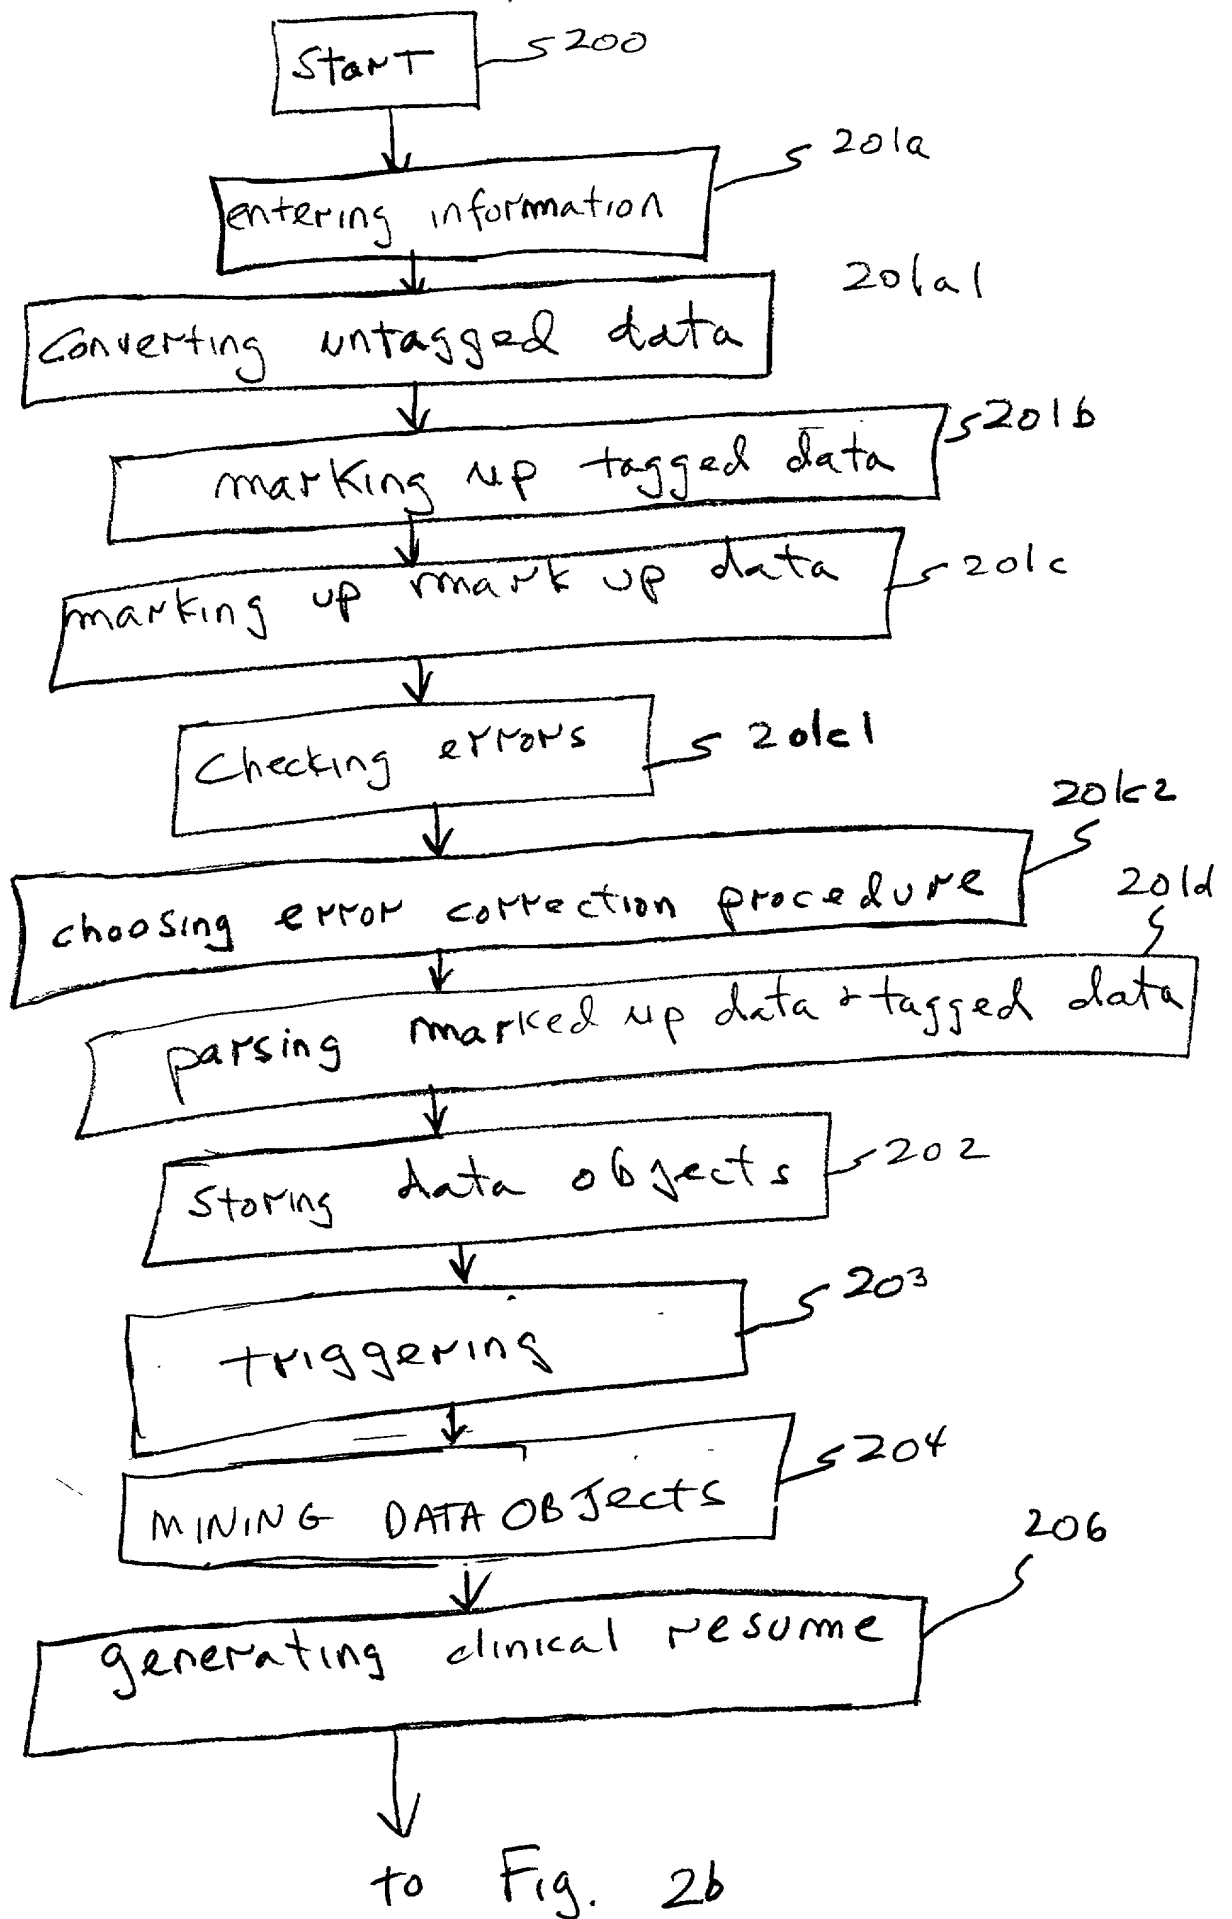 Start 200
201a
entering information
201a1
Converting untagged data
201b
marking up tagged data
marking up mark up data 201c
Checking errors 201c1
201c2
choosing error correction procedure
201d
parsing marked up data & tagged data
Storing data objects 202
203
triggering
204
MINING DATA OBJects
206
generating clinical resume
to Fig. 2b